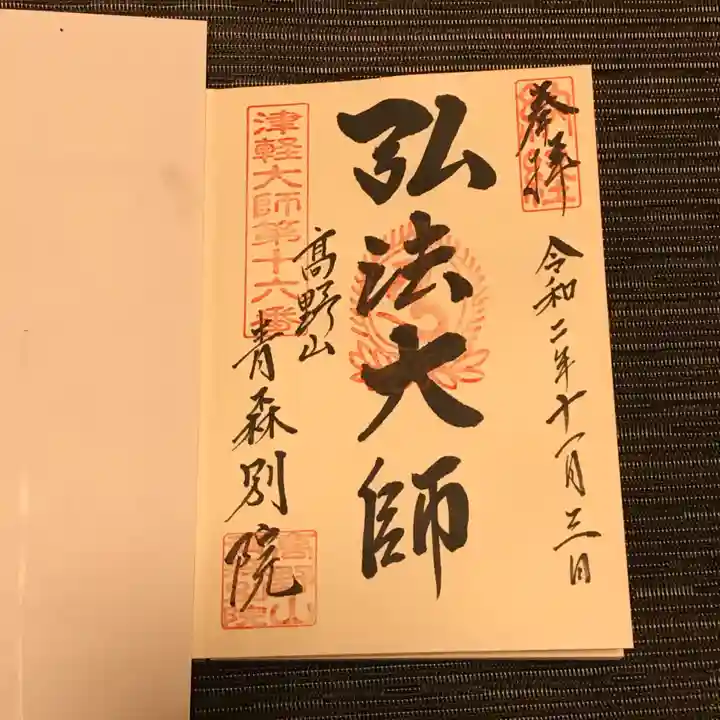 奉拝
納経
令和二年十一月三日
弘法大師
高野山
青森別院
津軽大師第十六番